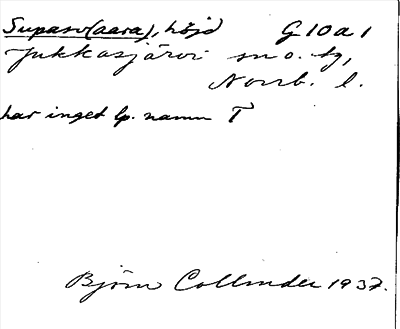 Supasv(aara), höjd G 10 a 1
Jukkasjärvi sn o. tg,
Norrb. l.
har inget lp. namn T
Björn Collinder 1937.